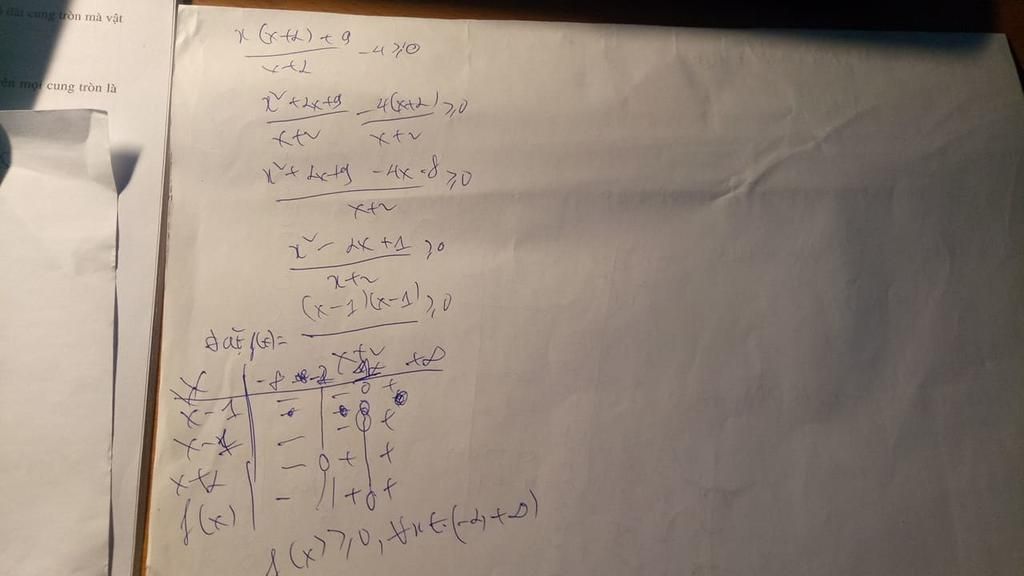 dài cung tròn mà vật
mọi cung tròn là
x(x+2)+9 / x+2 - 4 ≥ 0
x²+2x+9 / x+2 - 4(x+2) / x+2 ≥ 0
x²+2x+9-4x-8 / x+2 ≥ 0
x²-2x+1 / x+2 ≥ 0
đặt f(x)= (x-1)(x-1) / x+2 ≥ 0
x | -∞ -2 1 +∞
x-1 | - | - 0 +
x-1 | - | - 0 +
x+2 | - 0 + | +
f(x) | - | + 0 +
f(x) ≥ 0, ∀x ∈ (-2, +∞)